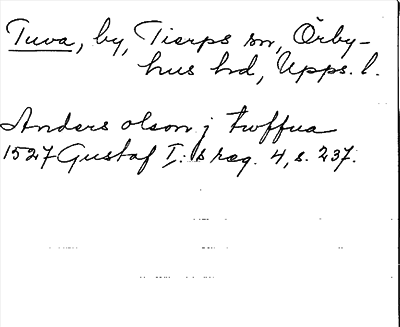 Tuva, by, Tierps sn, Örby-
hus hd, Upps. l.
Anders olson j twffua
1527 Gustaf I:s reg. 4, s. 237.